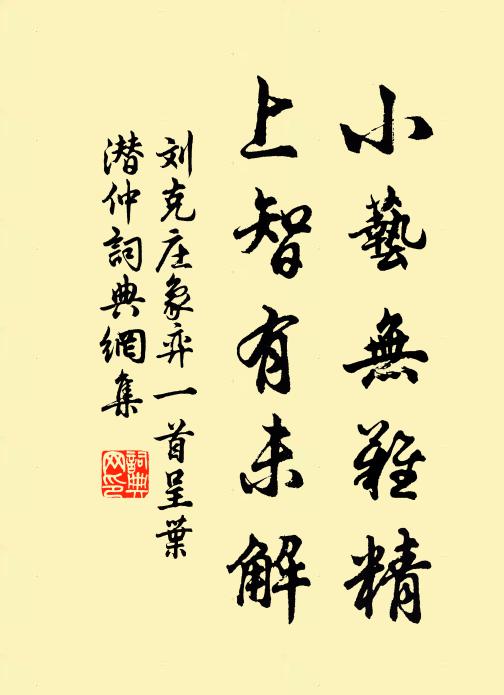 小藝無難精
上智有未解
刘克庄象弈一首呈葉
潜仲詞典網集
詞典
网印